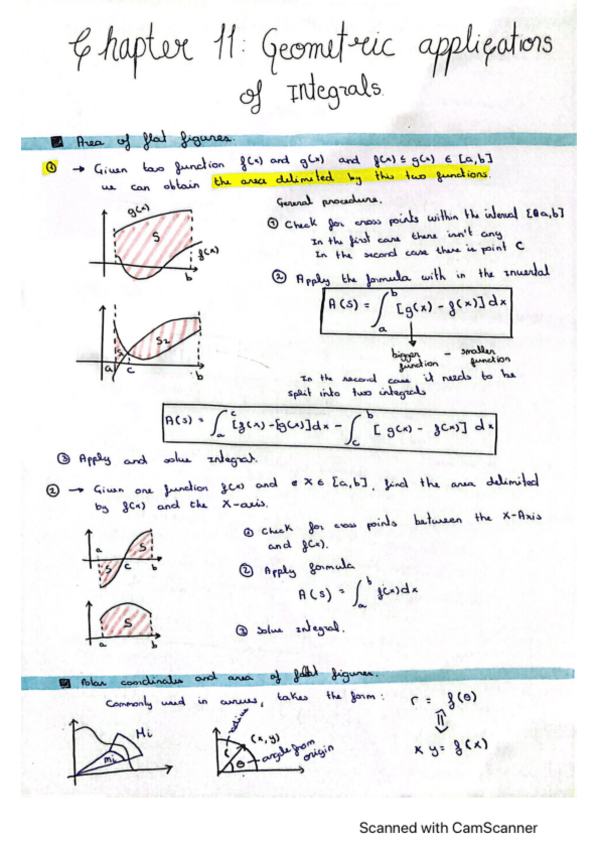 Chapter 11: Geometric applications
of Integrals.
Area of flat figures.
① → Given two function f(x) and g(x) and f(x) ≤ g(x) ∈ [a,b]
we can obtain the area delimited by this two functions.
General procedure.
① Check for cross points within the interval [a,b]
In the first case there isn't any
In the second case there is point C
② Apply the formula with in the interval
A(S) = ∫_a^b [g(x) - f(x)] dx
bigger function - smaller function
In the second case it needs to be
split into two integrals
A(s) = ∫_a^c [f(x)-[g(x)]dx - ∫_c^b [g(x) - f(x)] dx
③ Apply and solve Integral.
g(x)
S
f(x)
b
S₂
a
c
b
② → Given one function f(x) and x ∈ [a,b], find the area delimited
by f(x) and the X-axis.
① Check for cross points between the X-Axis
and f(x).
② Apply formula
A(S) = ∫_a^b f(x)dx
③ Solve Integral.
a
S
S
c
b
S
a
b
Polar coordinates and area of flat figures.
Commonly used in curves, takes the form: r = f(θ)
⇕
y = f(x)
Mi
mi
radius
(x,y)
r
θ
angle from
origin
Scanned with CamScanner